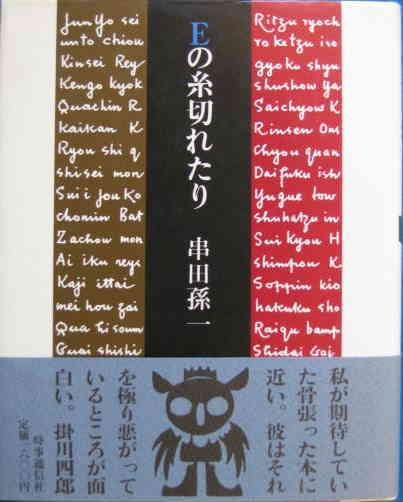 Eの糸切れたり
串田孫一
Jun Yo sei
unto chiou
Kinsei Rey
Kengo kyok
Quachin R
Kaikan K
Ryou shi q
shisei mon
Sui i jou Ko
chonin Bat
Zachou mon
Ai iku reye
Kaji ittai
mei hou zai
Qua hi soum
Guai shishi
Ritzu ryoch
ro ketzu iso
gyoku shyu
shushow Ya
Saichyow K
Rinsen Ons
Chyou quan
Daifuku ish
Yugue tow
shuhatzu in
Sui kyou H
shimpou K
Soppin kio
hakuku sho
Raiqu bamp
Shidai Goi
私が期待してい
た骨張った本に
近い。彼はそれ
を極り悪がって
いるところが面
白い。掛川四郎
時事通信社
定価一六〇〇円